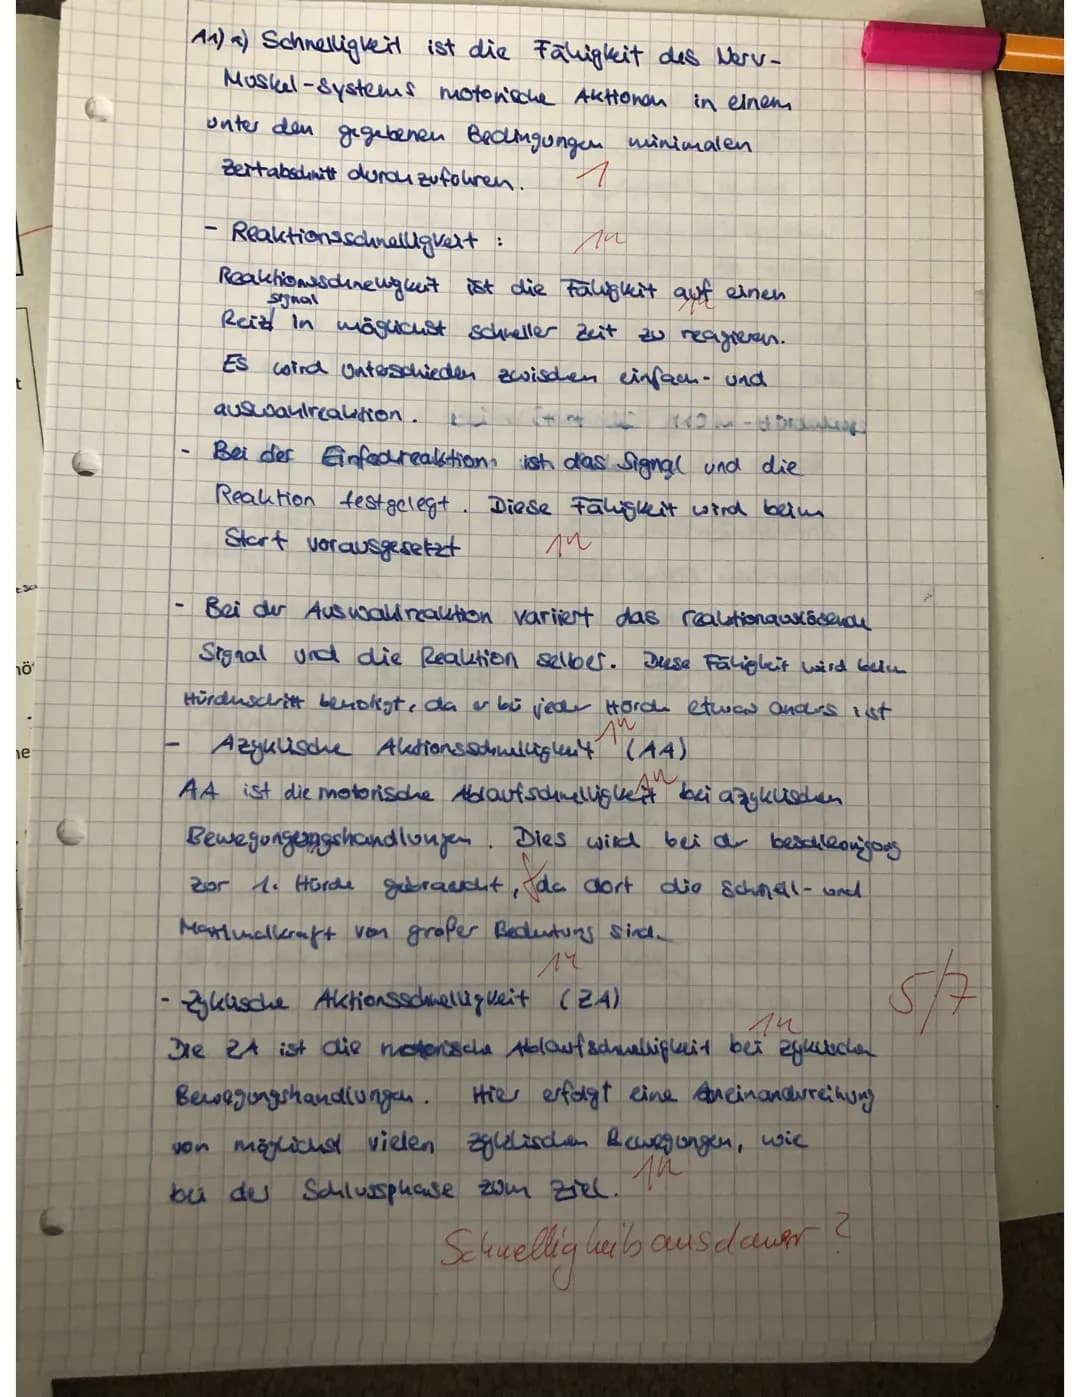 A1) a) Schnelligkeit ist die Fähigkeit des Nerv-
Muskel-Systems motorische Aktionen in einem
unter den gegebenen Bedingungen minimalen
Zeitabschnitt durchzuführen. 1
- Reaktionsschnelligkeit :
Reaktionsschnelligkeit ist die Fähigkeit auf einen
signal
Reiz in möglichst schneller Zeit zu reagieren.
Es wird unterschieden zwischen einfach- und
auswahlreaktion.
- Bei der Einfachreaktion ist das Signal und die
Reaktion festgelegt. Diese Fähigkeit wird beim
Start vorausgesetzt
- Bei der Auswahlreaktion variiert das reaktionauslösende
Signal und die Reaktion selber. Diese Fähigkeit wird beim
Hürdenschritt benötigt, da er bei jeder Hürde etwas anders ist
- Azyklische Aktionsschnelligkeit (AA)
AA ist die motorische Ablaufschnelligkeit bei azyklischen
Bewegungshandlungen. Dies wird bei der beschleunigung
zur 1. Hürde gebraucht, da dort die Schnell- und
Maximalkraft von großer Bedeutung sind.
5/7
- Zyklische Aktionsschnelligkeit (ZA)
Die ZA ist die motorische Ablaufschnelligkeit bei zyklischen
Bewegungshandlungen. Hier erfolgt eine Aneinanderreihung
von möglichst vielen zyklischen Bewegungen, wie
bei der Schlussphase zum Ziel.
Schnelligkeitsausdauer?